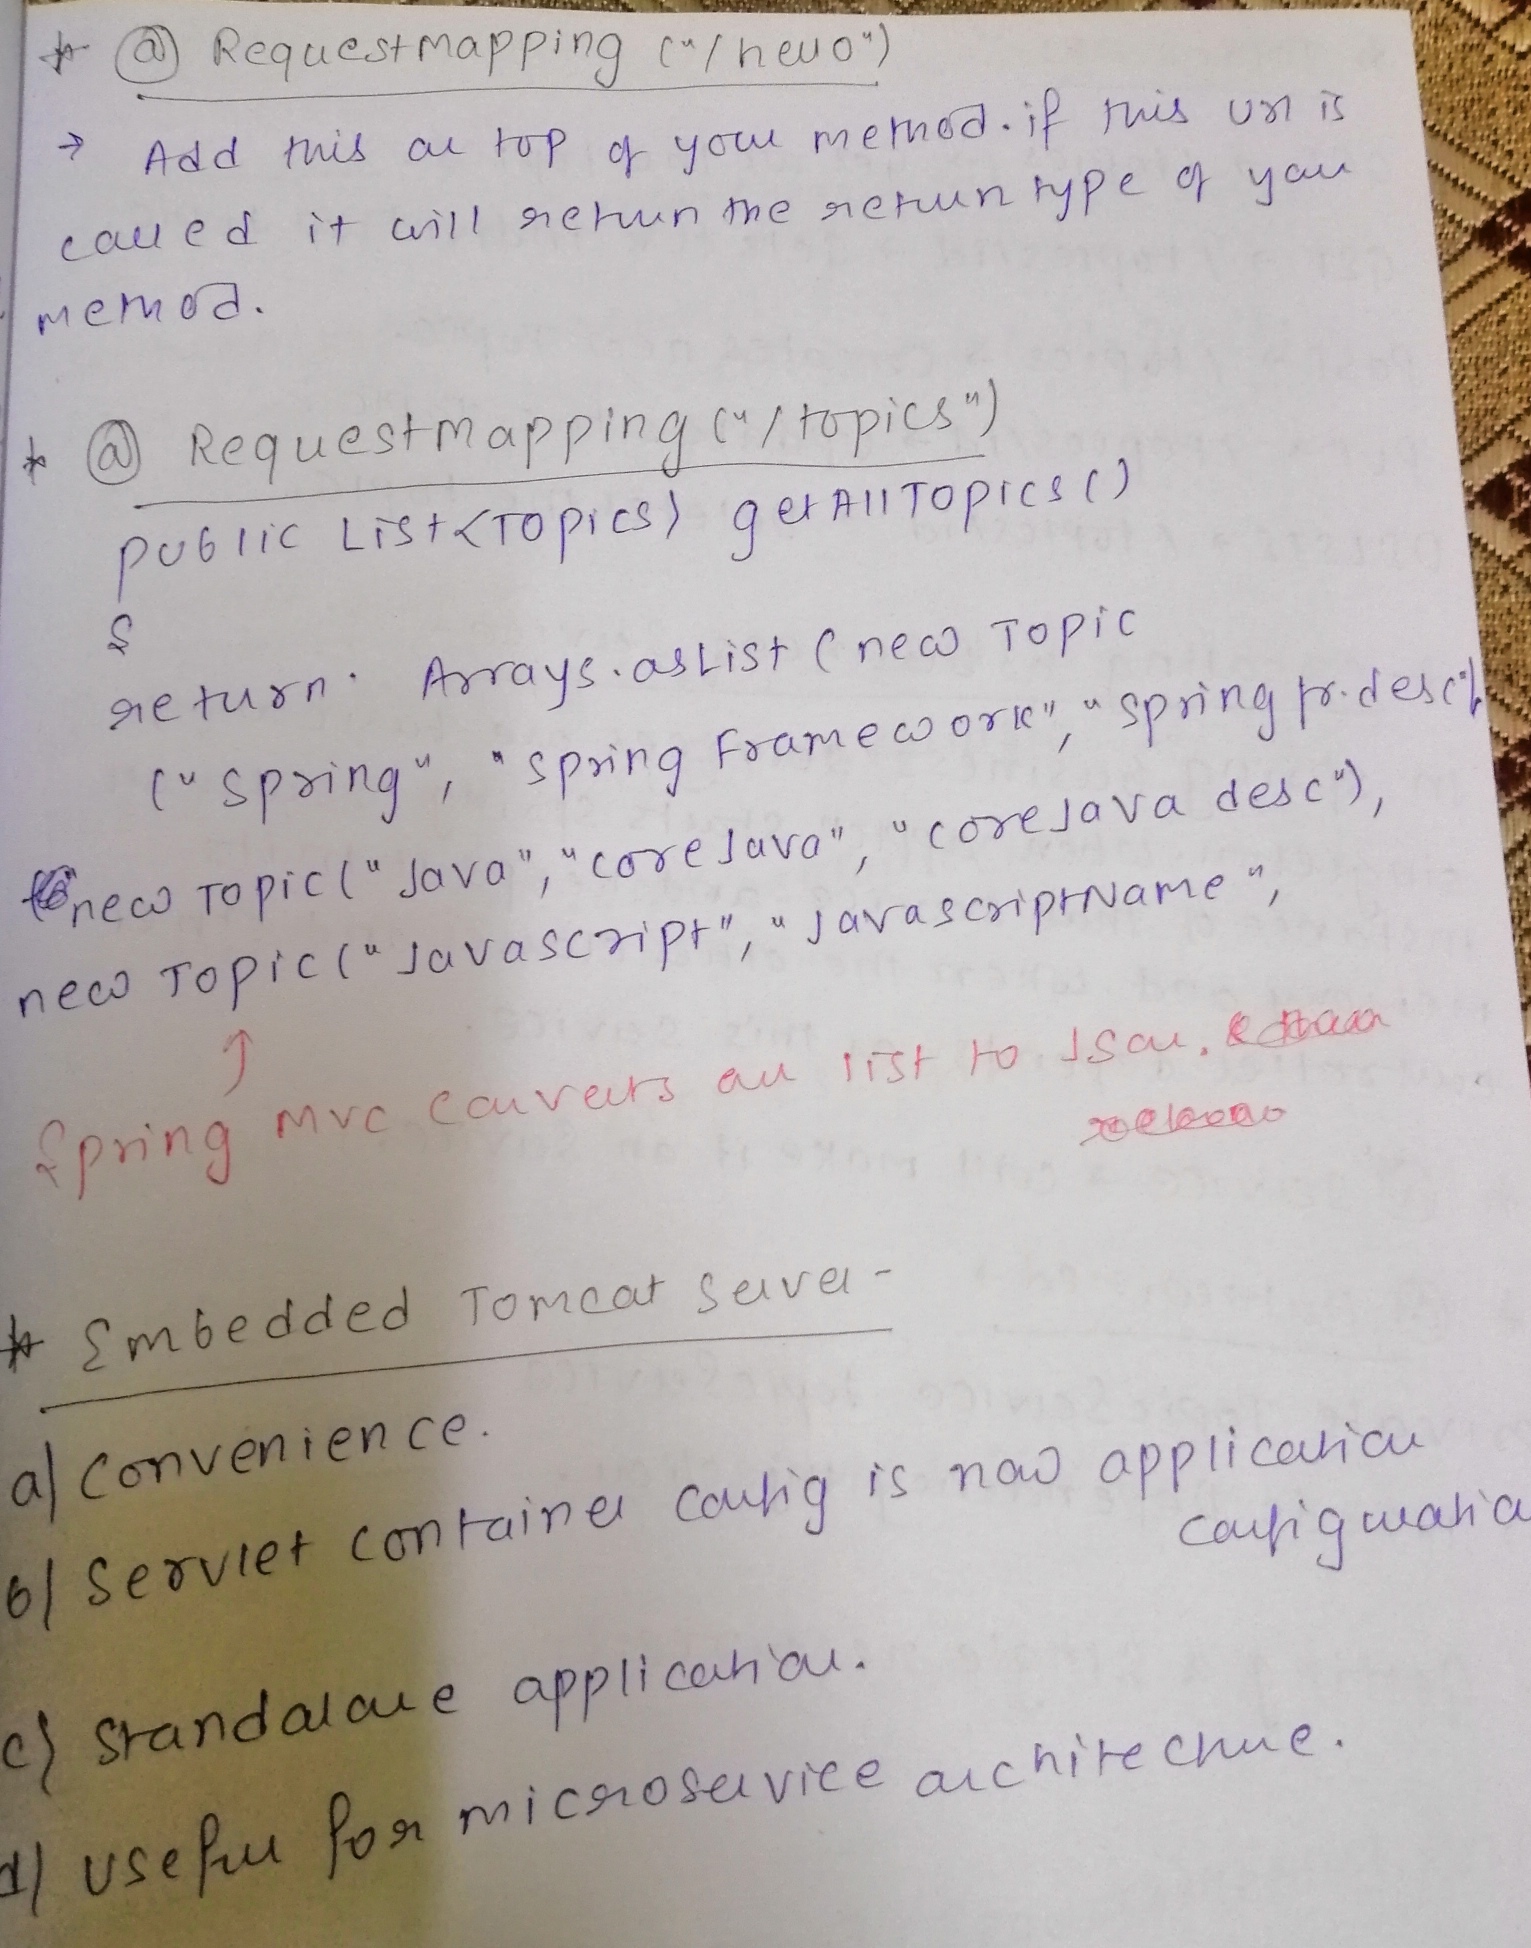 * @ Requestmapping ("/hello")
→ Add this on top of your method. if this url is
called it will return the return type of your
method.
* @ Requestmapping ("/topics")
public List<Topics> getAllTopics()
{
return. Arrays.asList (new Topic
("Spring", "Spring Framework", "Spring fr. desc"),
new Topic("Java", "coreJava", "coreJava desc"),
new Topic("Javascript", "JavascriptName",
↑
Spring MVC converts all list to Json.
* Embedded Tomcat Server -
a) Convenience.
b) Servlet container config is now application
configuration
c) Standalone application.
d) Useful for microservice architecture.